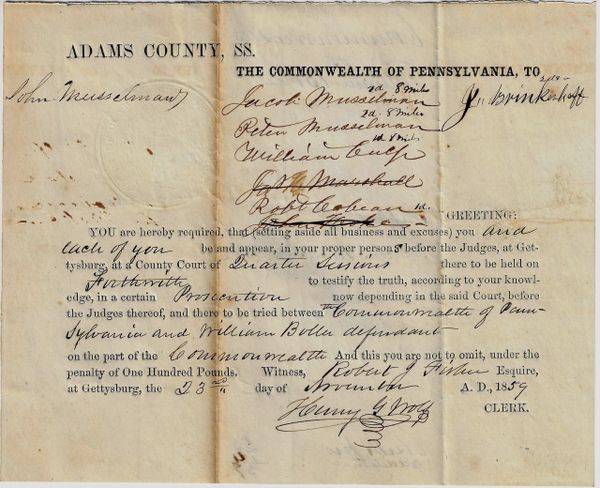 ADAMS COUNTY, SS.
THE COMMONWEALTH OF PENNSYLVANIA, TO
John Musselman
Jacob Musselman 2d 8 miles
Peter Musselman 2d. 8 miles
William Culp 1d 8 miles
J. Brinkerhoff 2ds
Marshall
Robt Cobean 1d.
GREETING:
YOU are hereby required, that (setting aside all business and excuses) you and
each of you be and appear, in your proper persons before the Judges, at Get-
tysburg, at a County Court of Quarter Sessions there to be held on
Forthwith to testify the truth, according to your knowl-
edge, in a certain Prosecution now depending in the said Court, before
the Judges thereof, and there to be tried between the Commonwealth of Penn
Sylvania and William Boller defendant
on the part of the Commonwealth And this you are not to omit, under the
penalty of One Hundred Pounds. Witness, Robert J Fisher Esquire,
at Gettysburg, the 23rd day of November A. D., 1859
Henry G Wolf
CLERK.